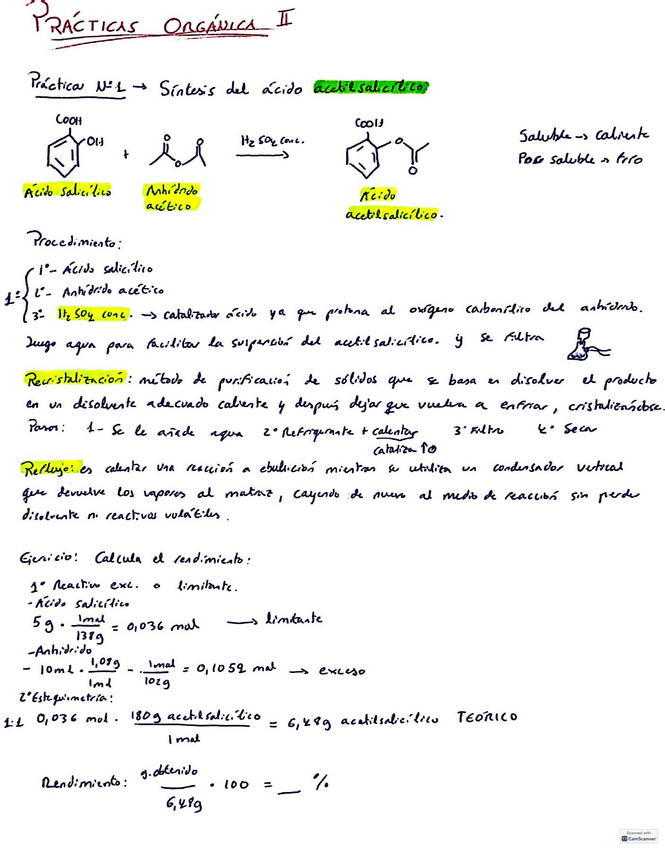 PRÁCTICAS ORGÁNICA II
Práctica Nº1 → Síntesis del ácido acetilsalicílico
COOH
OH
+
O O
O
H2SO4 conc.
COOH
O
O
Saluble → caliente
Poco saluble → frío
Ácido salicílico
Anhídrido
acético
Ácido
acetilsalicílico.
Procedimiento:
1º
1º- Ácido salicílico
2º- Anhídrido acético
3º H2SO4 conc. → catalizador ácido ya que protona al oxígeno carbonílico del anhídrido.
luego agua para facilitar la suspensión del acetilsalicílico. y se filtra
Recristalización: método de purificación de sólidos que se basa en disolver el producto
en un disolvente adecuado caliente y después dejar que vuelva a enfriar, cristalizándose.
Pasos: 1- Se le añade agua 2º Refrigerante + calentar 3º Filtro 4º Secar
cataliza ↑
Reflujo: es calentar una reacción a ebullición mientras se utiliza un condensador vertical
que devuelve los vapores al matraz, cayendo de nuevo al medio de reacción sin perder
disolvente ni reactivos volátiles.
Ejercicio: Calcula el rendimiento:
1º Reactivo exc. o limitante.
-Ácido salicílico
5g · 1mol / 138g = 0,036 mol → limitante
-Anhídrido
- 10ml · 1,08g / 1ml · 1mol / 102g = 0,1059 mol → exceso
2º Estequiometría:
1:1 0,036 mol · 180g acetilsalicílico / 1mol = 6,48g acetilsalicílico TEÓRICO
Rendimiento: g.obtenido / 6,48g · 100 = __ %
Scanned with
CamScanner